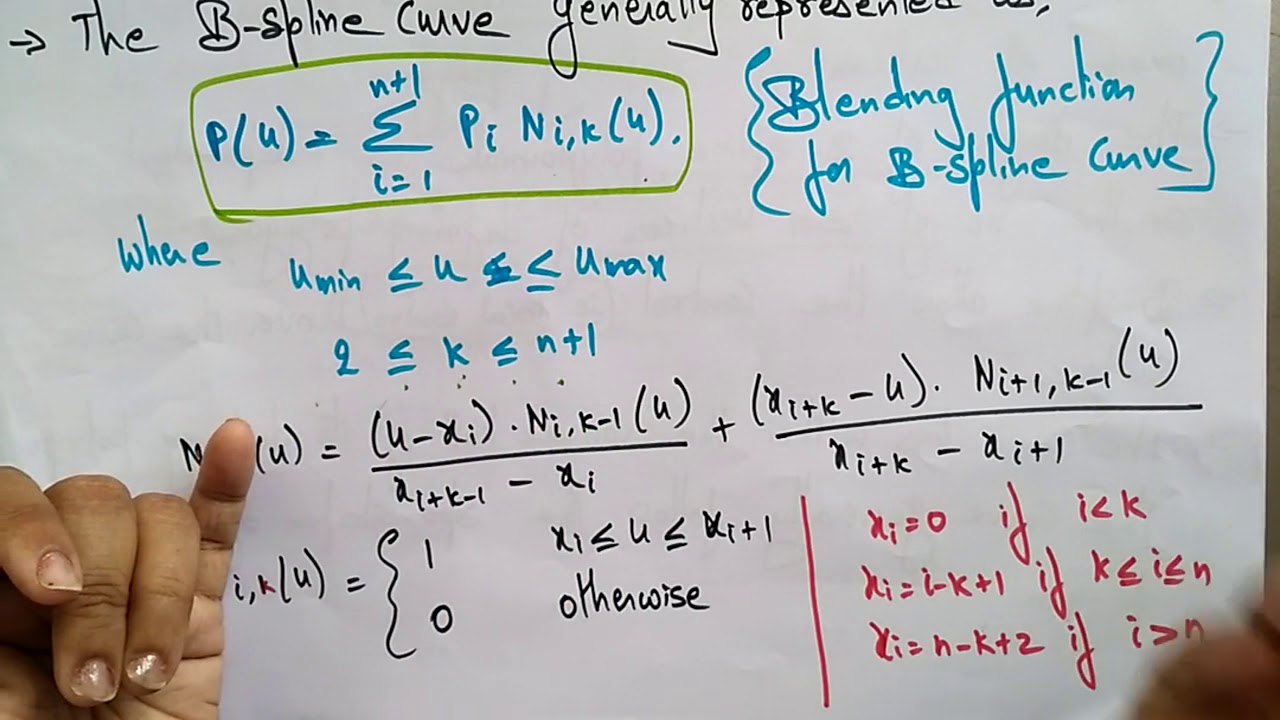 → The B-spline Curve generally represented as,
P(u) = Σ_{i=1}^{n+1} P_i N_{i,k}(u).
{ Blending function
for B-spline Curve }
where
u_min ≤ u ≤ u_max
2 ≤ k ≤ n+1
N (u) = (u-x_i) · N_{i,k-1}(u) / x_{i+k-1} - x_i + (x_{i+k} - u) · N_{i+1,k-1}(u) / x_{i+k} - x_{i+1}
i,k(u) = { 1 x_i ≤ u ≤ x_{i+1}
0 otherwise
x_i = 0 if i < k
x_i = i-k+1 if k ≤ i ≤ n
x_i = n-k+2 if i > n